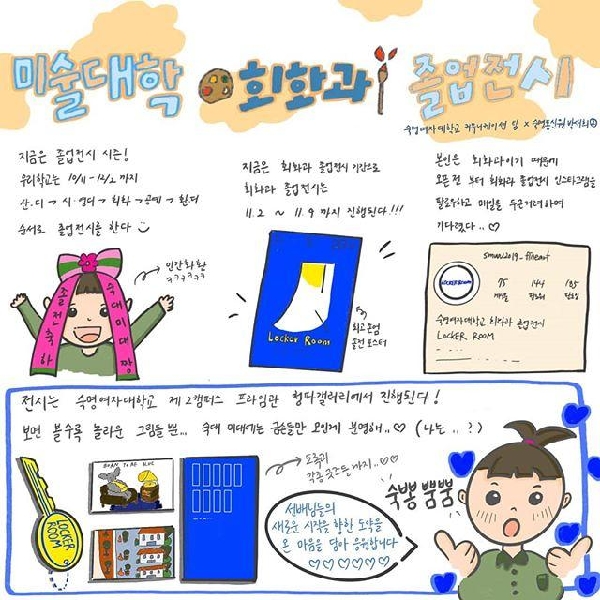 미술대학 회화과 졸업전시
숙명여자대학교 커뮤니케이션 팀 X 숙명통신원 박세희
지금은 졸업전시 시즌!
우리학교는 10/11 - 12/2 까지
산.디 → 시.영디 → 회화 → 공예 → 한국화
순서로 졸업전시를 한다
인간화환
ㅋㅋㅋㅋㅋ
졸전축하
숙대미대짱
지금은 회화과 졸업전시 기간으로
회화과 졸업전시는
11.2 ~ 11.9 까지 진행된다!!!
LOCKER ROOM
회화과
졸전 포스터
본인은 회화과이기 때문에
오픈 전부터 회화과 졸업전시 인스타그램을
팔로우하고 매일을 두근거려하며
기다렸다..♡
smwu2019_fineart
LOCKER ROOM
95 144 185
게시물 팔로워 팔로잉
숙명여자대학교 회화과 졸업전시
LOCKER ROOM
전시는 숙명여자대학교 제2캠퍼스 프라임관 청파갤러리에서 진행된다!
보면 볼수록 놀라운 그림들 뿐... 숙대 미대에는 금손들만 모인게 분명해..♡ (나는..?)
LOCKER
ROOM
도록과
각종 굿즈들까지..♡♡
선배님들의
새로운 시작을 향한 도약을
온 마음을 담아 응원합니다
♡♡♡♡♡♡
숙뽕 뿜뿜